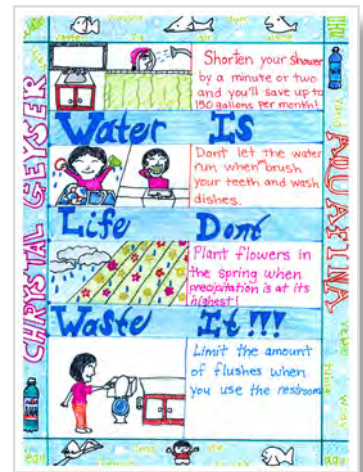 Shorten your shower
by a minute or two
and you'll save up to
150 gallons per month!
Water Is
Dont let the water
run when brush
your teeth and wash
dishes.
Life Dont
Plant flowers in
the spring when
precipitation is at its
highest!
Waste It!!!
Limit the amount
of flushes when
you use the restroom
CHRYSTAL GEYSER
AQUAFINA